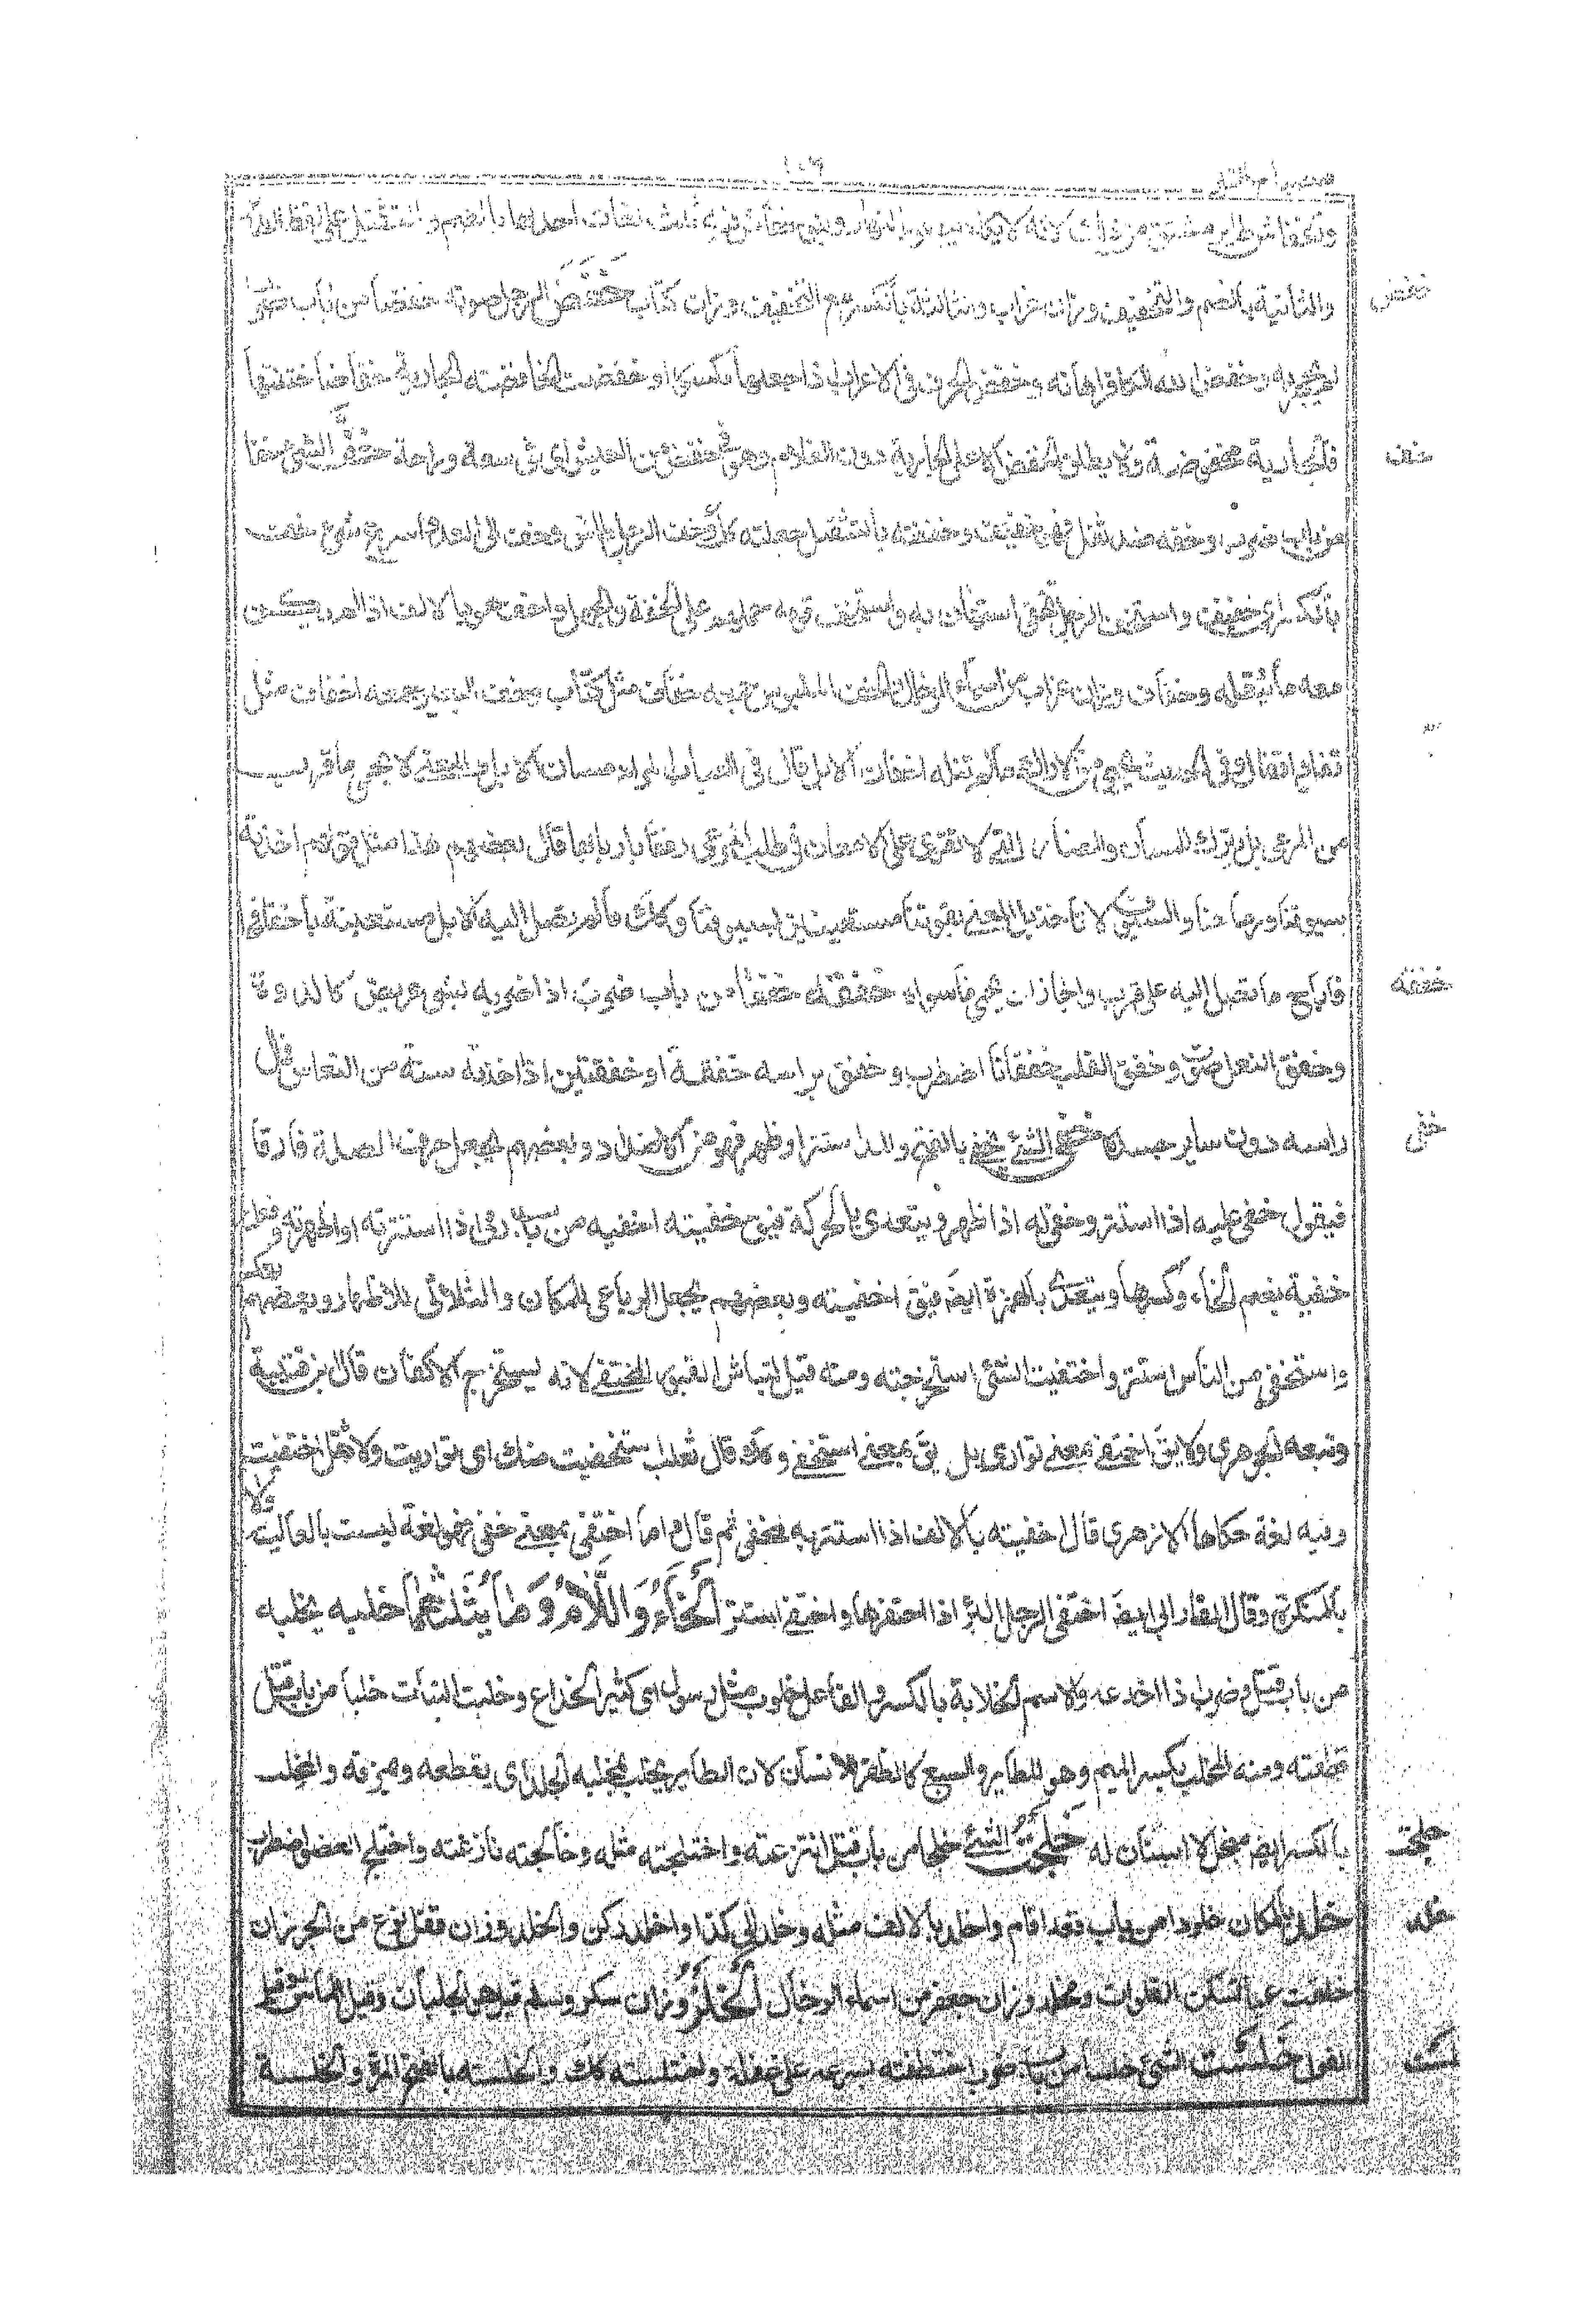 ١٠٦
والثانية بالضم والتخفيف وزان غراب والثالثة بالكسر مع التخفيف وزان كتاب خَفَضَ الرجل صوته خفضا من باب ضرب
خفض
لم يجهر به وخفض الله الكافر اهانه وخفض الحرف في الاعراب اذا جعله مكسورا وخفضت الخافضة الجارية خفاضا ختنتها
فالجارية مخفوضة ولا يطلق الخفض الا على الجارية دون الغلام وهو في خفض من العيش اى في سعة وراحة خَفَّ الشئ خفا
خف
من باب ضرب وخفة ضد ثقل فهو خفيف وخففته بالتثقيل جعلته كك وخف الرجل طاش وخف الى العدو اسرع شئ خف
بالكسر اى خفيف واستخف الرجل بحقى استهان به واستخف قومه حملهم على الخفة والجهل واخف هو بالالف اذا لم يكن
معه ما يثقله وخفاف وزان غراب من اسماء الرجال والخف الملبوس جمعه خفاف مثل كتاب وخف البعير جمعه اخفاف مثل
قفل واقفال وفى الحديث يحمى من الاراك ما لم تنله اخفاف الابل قال في العباب المراد مسان الابل والمعنى لا يحمى ما قرب
من المرعى بل يترك للمسان والضعاف التى لا تقوى على الامعان في طلب المرعى رفقا باربابها قال بعضهم هذا مثل قولهم اخذته
سيوفنا ورماحنا والسيوف لا تاخذ بل المعنى بقوتنا مستعينين بسيوفنا وكك ما لم تصل اليه الابل مستعينة باخفافها
فاباح ما تصل اليه على قرب واجاز ان يحمى ما سواه خَفَقَهُ خفقا من باب ضرب اذا ضربه بشئ عريض كالدرة
خفقه
وخفق النعل صوت وخفق القلب خفقانا اضطرب وخفق براسه خفقة او خفقتين اذا اخذته سنة من النعاس فمال
راسه دون ساير جسده خَفِىَ الشئ يخفى بالفتح والمد استتر او ظهر فهو من الاضداد وبعضهم يجعل حرف الصلة فارقا
خفى
فيقول خفى عليه اذا استتر وخفى له اذا ظهر ويتعدى بالحركة فيق خفيته اخفيه من باب رمى اذا استرته او اظهرته وفعلته
خفية بضم الخاء وكسرها ويتعدى بالهمزة ايضا فيق اخفيته وبعضهم يجعل الرباعى للكتمان والثلاثى للاظهار وبعضهم يعكس
واستخفى من الناس استتر واختفيت الشئ استخرجته ومنه قيل لنباش القبور المختفى لانه يستخرج الاكفان قال ابن قتيبة
وتبعه الجوهرى ولا يق اختفى بمعنى توارى بل يق بمعنى استخفى وكك قال ثعلب استخفيت منك اى تواريت ولا تقل اختفيت
وفيه لغة حكاها الازهرى قال اخفيته بالالف اذا استرته فخفى ثم قال واما اختفى بمعنى خفى فهى لغة ليست بالعالية ولا
بالمنكرة وقال الفارابى ايضا اختفى الرجل البئر اذا احتفرها واختفى استتر اَلْخَاءُ وَاللَّامُ وَمَا يُثَلِّثُهُمَا خلبه يخلبه
من باب قتل وضرب اذا خدعه والاسم الخلابة بالكسر والفاعل خلوب مثل رسول اى كثير الخداع وخلبت النبات خلبا من باب قتل
قطعته ومنه المخلب بكسر الميم وهو للطاير والسبع كالظفر للانسان لان الطاير يخلب بمخلبه الجلد اى يقطعه ويمزقه والمخلب
بالكسر ايضا منجل لا اسنان له خَلَجْتُ الشئ خلجا من باب قتل انتزعته واختلجته مثله وخالجته نازعته واختلج العضو اضطرب
خلجت
خَلَدَ بالمكان خلودا من باب قعد اقام واخلد بالالف مثله وخلد الى كذا واخلد ركن والخلد وزان قفل نوع من الجرذان
خلد
خلقت عمياء تسكن الفلوات ومخلد وزان جعفر من اسماء الرجال اَلْخُلَّرُ وزان سكر وسلم قيل هو الجلبان وقيل الماش وقيل
الفول خَلَسْتُ الشئ خلسا من باب ضرب اختطفته بسرعة على غفلة واختلسته كك والخلسة بالفتح المرة والخلسة
لست